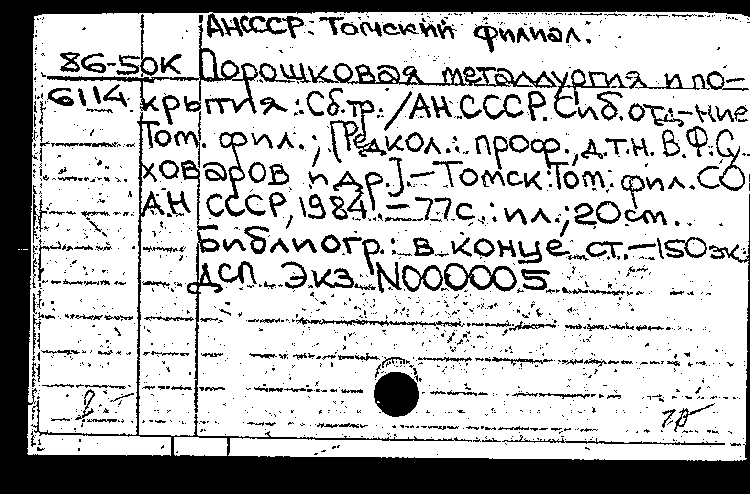 АНСССР. Томский филиал.
86-50К Порошковая металлургия и по-
6114 крытия: Сб.тр. / АН СССР. Сиб. отд-ние
Том. фил.; [Редкол.: проф., д.т.н. В.Ф. Су
ховаров и др.] – Томск: Том. фил. СО
АН СССР, 1984. – 77с.: ил.; 20см.
Библиогр.: в конце ст. – 150 экз.
ДСП Экз N000005